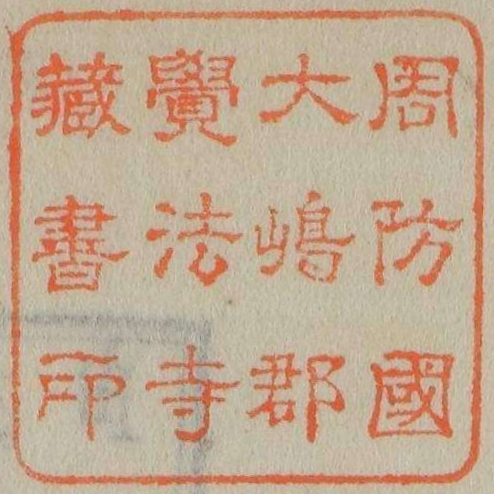 周防國
大嶋郡
覺法寺
藏書印